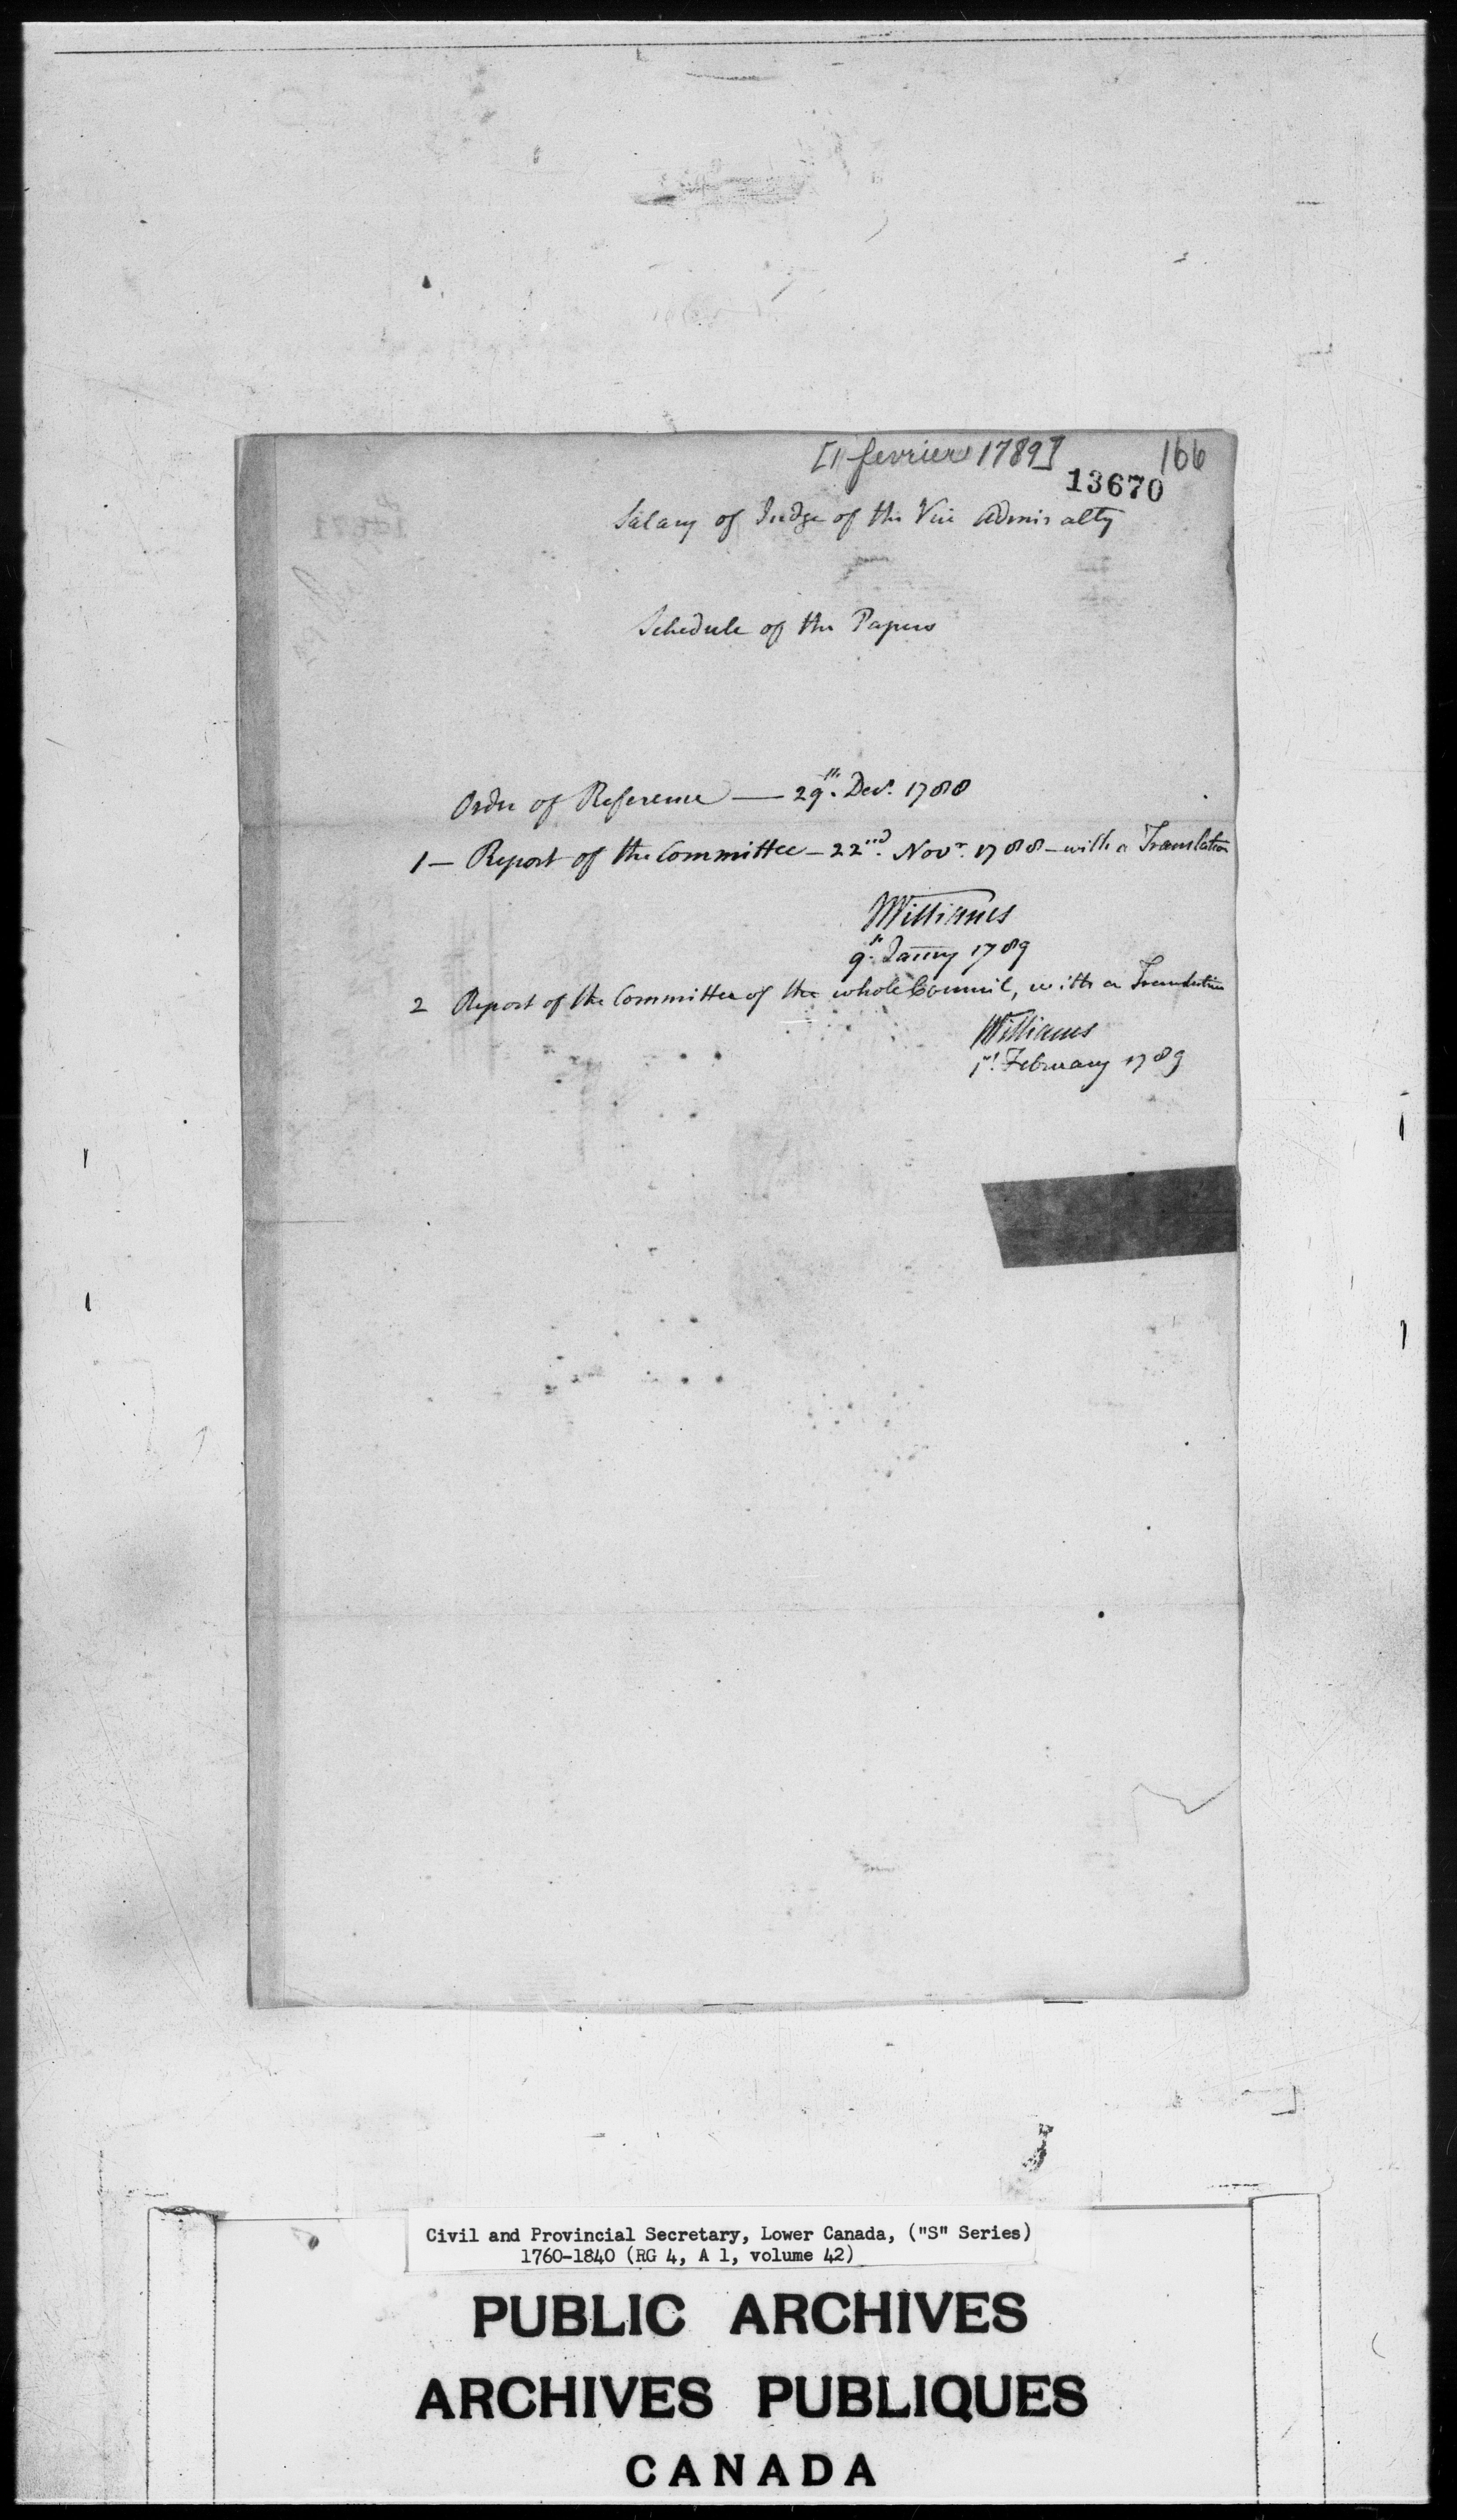 [1 fevrier 1789] 166
13670
Salary of Judge of the Vice Admiralty
Schedule of the Papers
Order of Reference — 29th. Decr. 1788
1 — Report of the Committee — 22nd. Novr. 1788 — with a Translation
JWilliams
9th. Janry 1789
2 Report of the Committee of the whole Council, with a Translation
JWilliams
1st. February 1789
Civil and Provincial Secretary, Lower Canada, ("S" Series)
1760-1840 (RG 4, A 1, volume 42)
PUBLIC ARCHIVES
ARCHIVES PUBLIQUES
CANADA